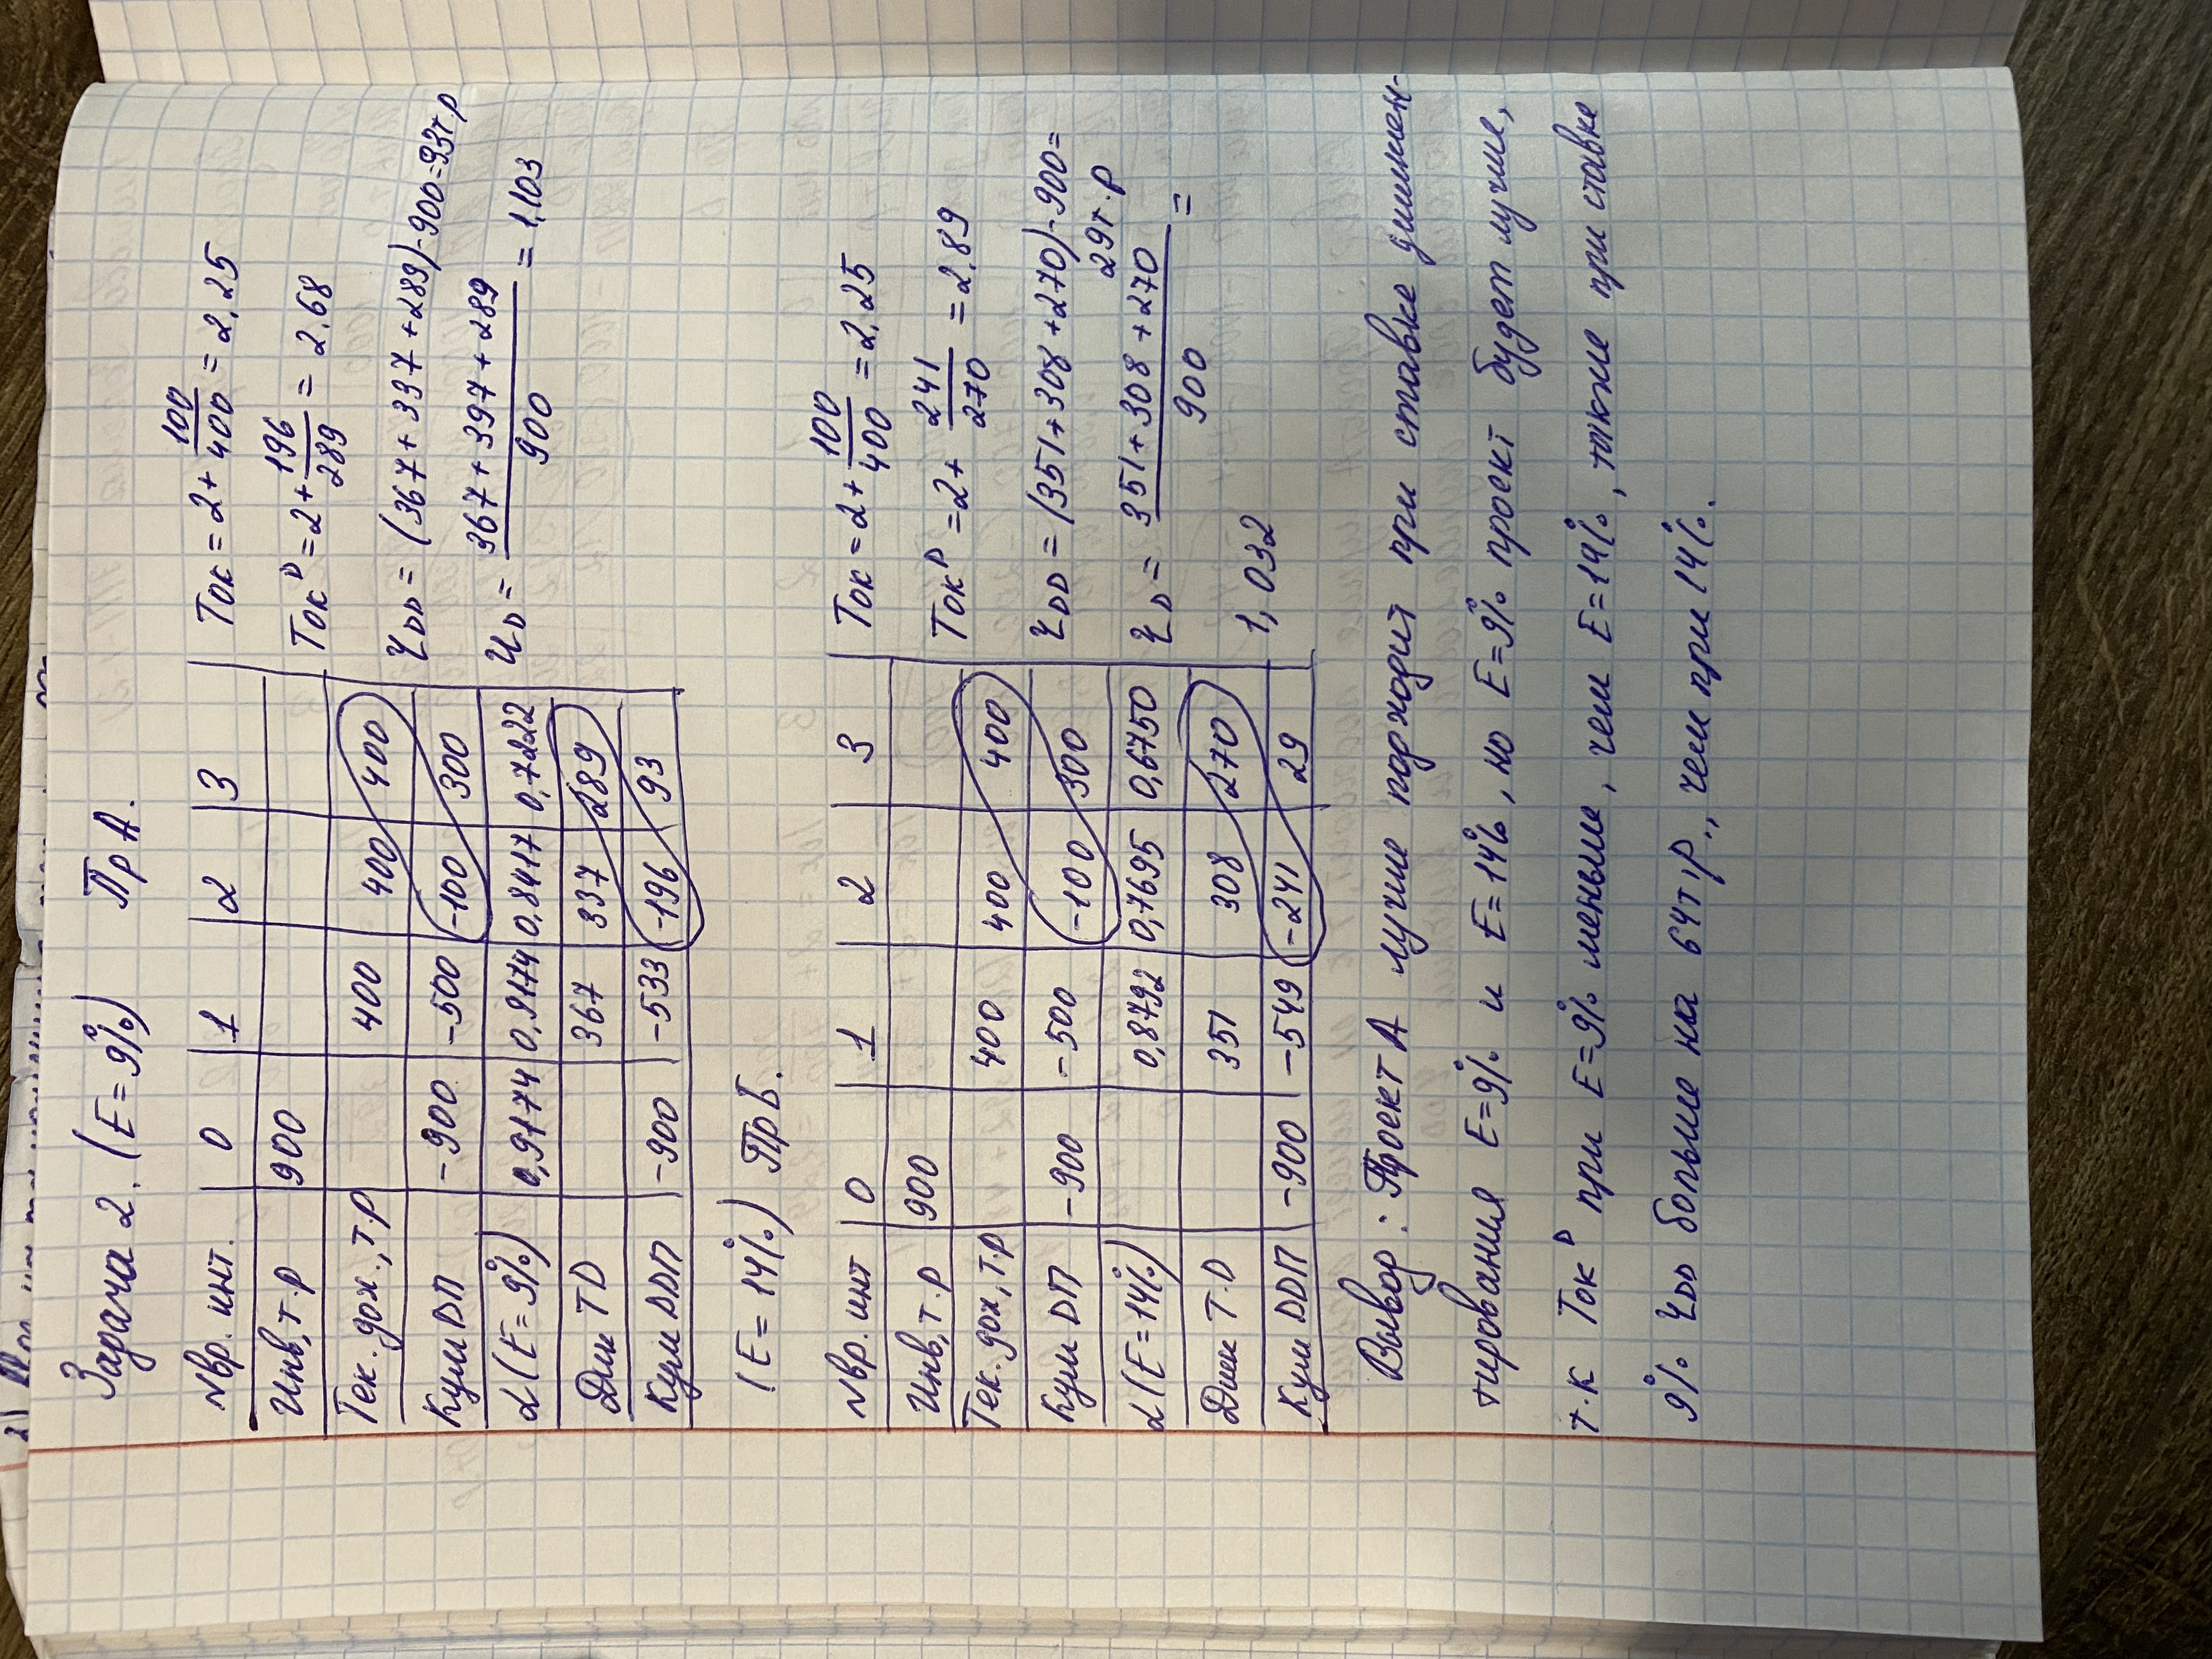 Задача 2. (E=9%) Пр А.
№ вр. инт. 0 1 2 3
Инв, т.р 900
Тек. дох., т.р 400 400 400
Кум DП -900 -500 -100 300
α (E=9%) 0,9174 0,9174 0,8417 0,7222
Дис TD 367 337 289
Кум DDП -900 -533 -196 93
Ток = 2+ 100/400 = 2.25
Ток^D = 2+ 196/289 = 2.68
ЧDD = (367+337+289)-900=93т.р
ИD = (367+397+289)/900 = 1,103
(E=14%) Пр Б.
№ вр. инт 0 1 2 3
Инв, т.р 900
Тек. дох, т.р 400 400 400
Кум DП -900 -500 -100 300
α (E=14%) 0,8792 0,7695 0,6750
Дис T.D 351 308 270
Кум DDП -900 -549 -241 29
Ток = 2+ 100/400 = 2.25
Ток^D = 2+ 241/270 = 2.89
ЧDD = (351+308+270)-900=
29т.р
ЧD = (351+308+270)/900 =
1,032
Вывод: Проект А лучше подходит при ставке дисконт-
тирования E=9% и E=14%, но E=9% проект будет лучше,
т.к Ток^D при E=9% меньше, чем E=14%, также при ставке
9% ЧDD больше на 64т.р., чем при 14%.